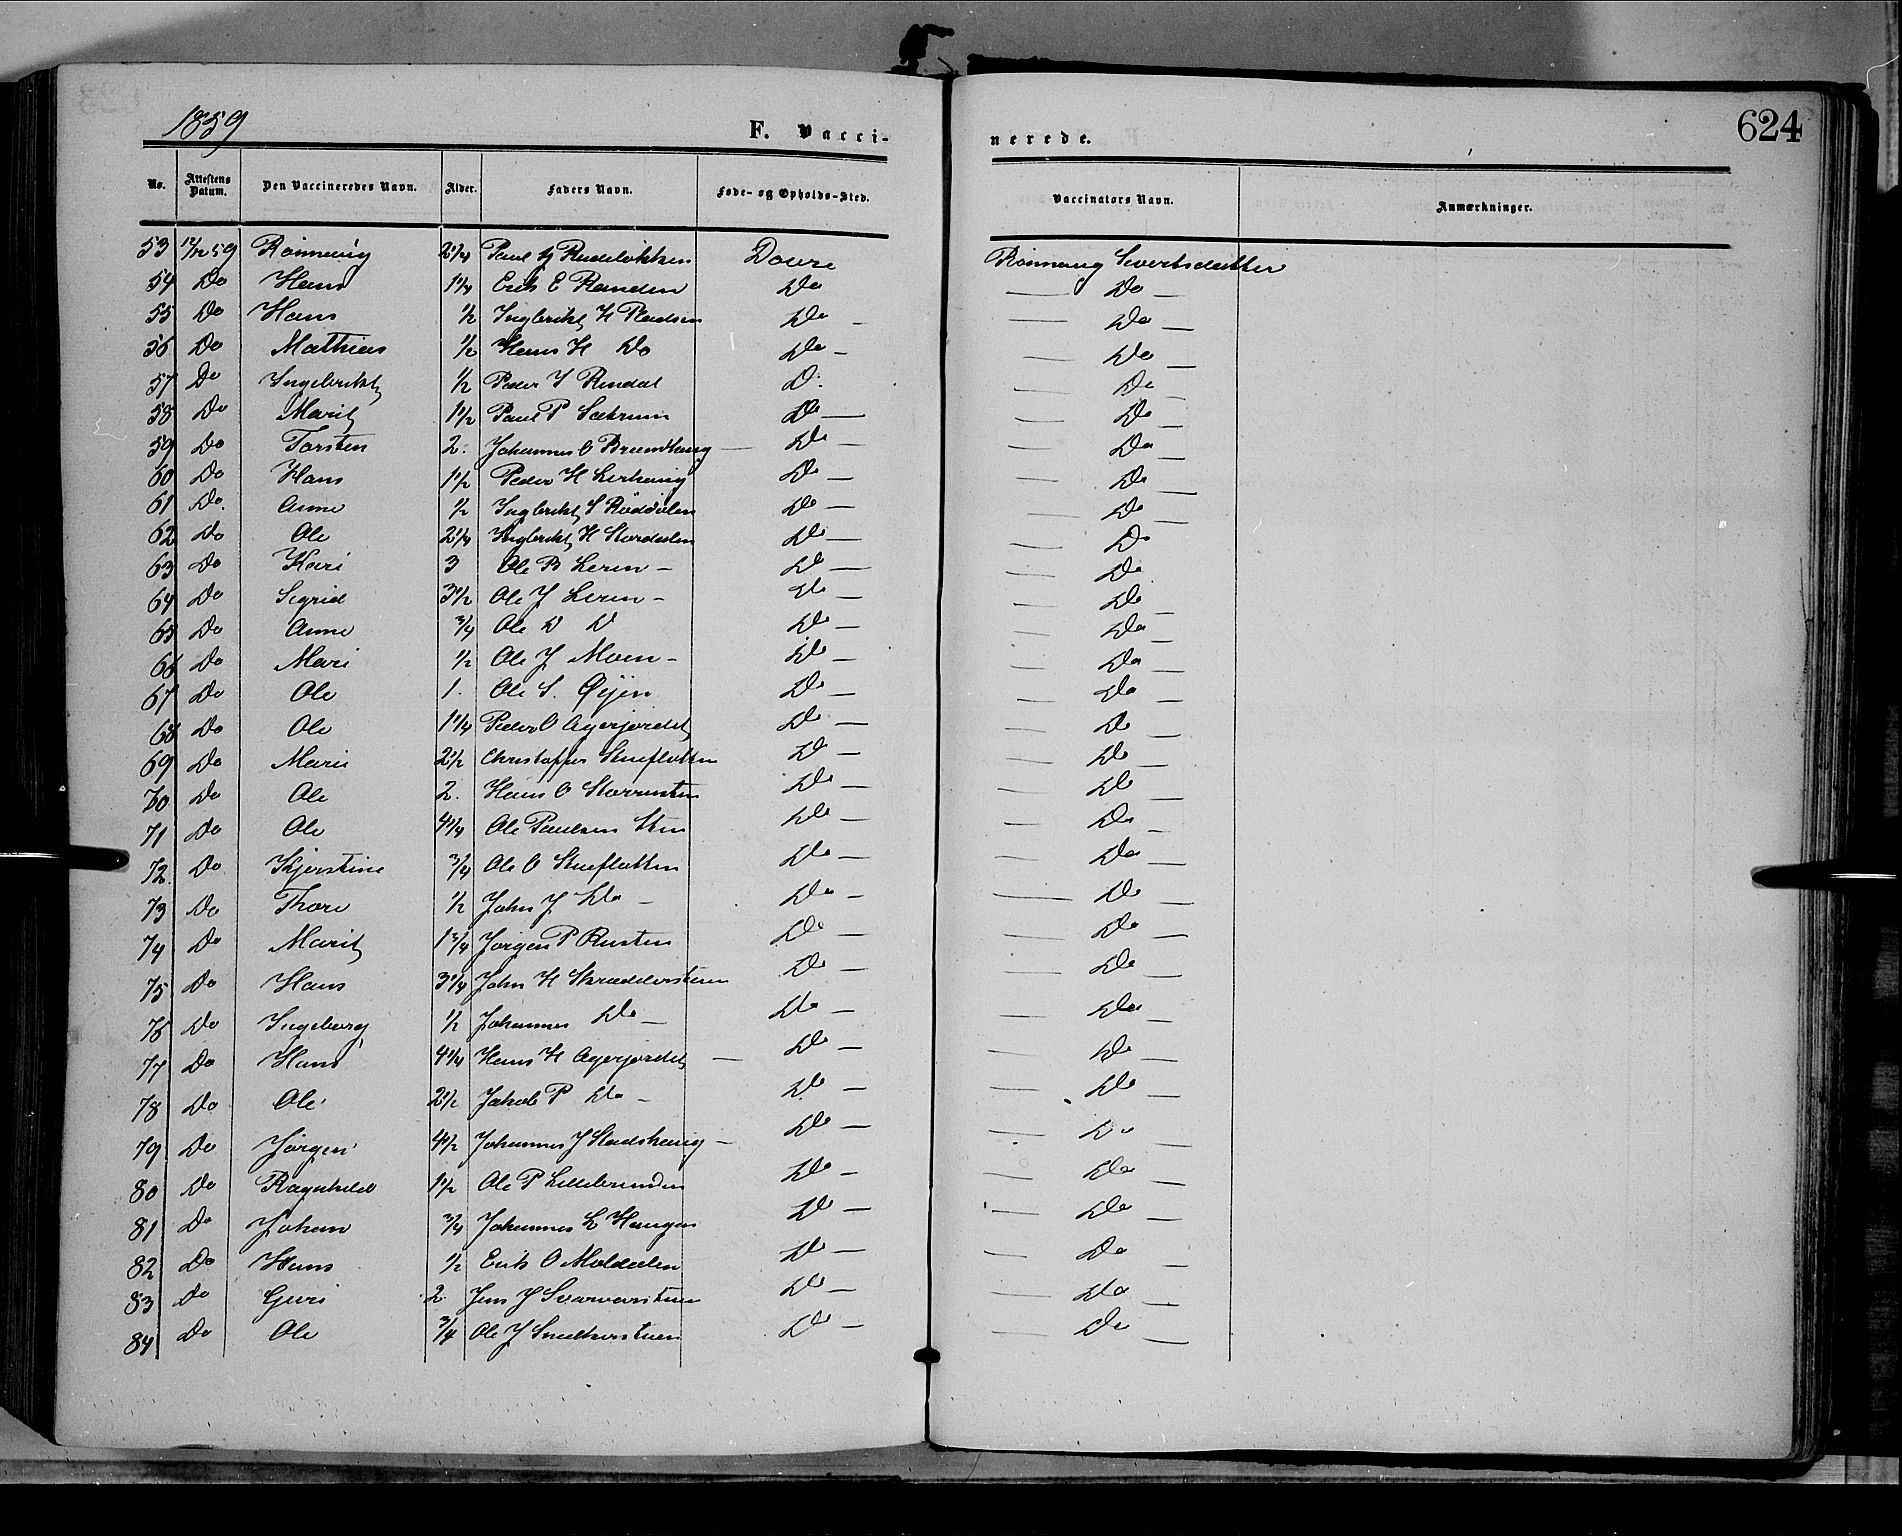 1859
F. Vacci-
nerede.
624
No. Attestens Datum. Den Vaccineredes Navn. Alder. Faders Navn. Føde- og Opholds-Sted. Vaccinators Navn. Anmærkninger.
53 12/12 59 Rønnaug 2 1/4 Paul Rudeløkken Dovre Rønnaug Sivertsdatter
54 Do Hans 1 1/4 Erik E Randen Do — Do —
55 Do Hans 1/2 Ingbrikt H Pladsen Do — — Do —
56 Do Mathias 1/2 Hans H Do Do — — Do —
57 Do Ingebrikt 1/2 Peder I Rindal D. — Do —
58 Do Marit 1 1/2 Paul P Sætrum Do — — Do —
59 Do Torsten 2. Johannes O Brændhaug — Do — — Do —
60 Do Hans 1 1/2 Peder H Lerhaug Do — — Do —
61 Do. Anne 1/2 Ingbrikt S Røddølen Do — — Do —
62 Do Ole 2 1/4 Ingbrikt H Stordalen Do — — Do
63 Do Kari 3 Ole B Leren — Do — — Do
64 Do Sigrid 3 1/2 Ole J Leren — Do — — Do —
65 Do Anne 3/4 Ole D D Do — — Do —
66 Do Mari 1/2 Ole J Moen — Do — — Do —
67 Do Ole 1. Ole S. Øyen Do — — Do —
68 Do Ole 1 1/4 Peder O Agerjordet Do — — Do —
69 Do Marie 2 1/2 Christopher Stueflotten Do — — Do —
70 Do Ole 2. Hans O Storrusten Do — — Do —
71 Do Ole 4 1/4 Ole Paulsen Sten Do — — Do —
72. Do Kjerstine 3/4 Ole O Stueflotten Do — — Do —
73 Do Thore 1/2 John J Do — Do — — Do —
74 Do Marit 1 3/4 Jørgen P Rusten Do — — Do —
75 Do Hans 3 1/4 John H Skrædderstuen Do — — Do —
76 Do Ingeborg 1/2 Johannes Do — Do — — Do —
77 Do Hans 4 1/4 Hans H Agerjordet — Do — — Do —
78 Do Ole 2 1/2 Jakob P Do — Do — — Do —
79 Do Jørgen 4 1/2 Johannes J Stadshaug — Do — — Do —
80 Do Ragnhild 1 1/2 Ole P Lillebrunden Do — — Do —
81 Do Johan 3/4 Johannes L Haugen Do — — Do —
82 Do Hans 1/2 Erik O Moldalen Do — — Do —
83 Do Guri 2 Jens J Svarvarstuen Do — — Do —
84 Do Ole 3/4 Ole J Snedkerstuen Do — — Do —